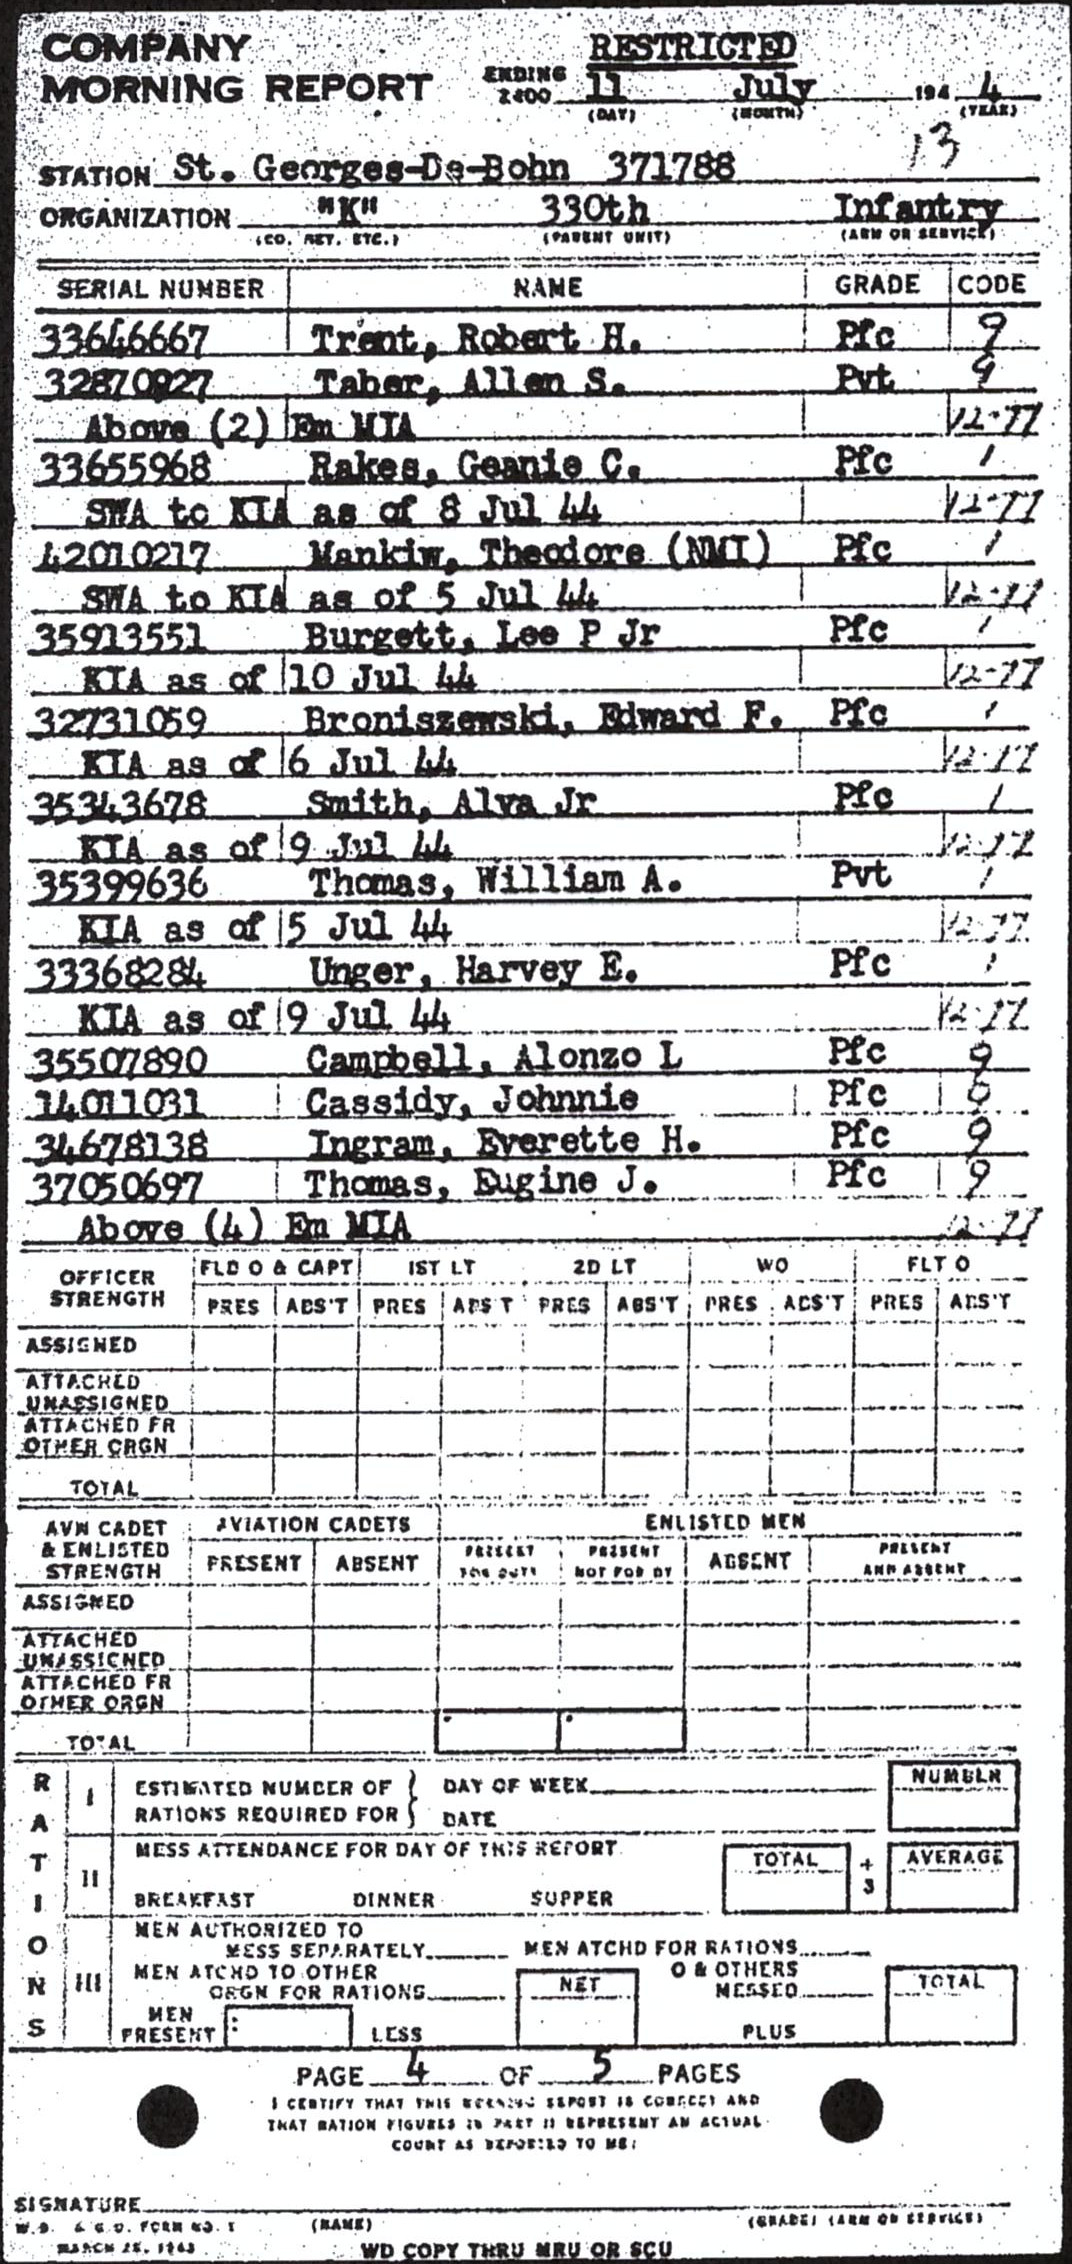 COMPANY RESTRICTED
MORNING REPORT ENDING 2400 11 July 194 4
(DAY) (MONTH) (YEAR)
13
STATION St. Georges-De-Bohn 371788
ORGANIZATION "K" 330th Infantry
(CO. BET. ETC.) (PARENT UNIT) (ARM OR SERVICE)
SERIAL NUMBER NAME GRADE CODE
33646667 Trent, Robert H. Pfc 9
32870927 Taber, Allen S. Pvt 9
Above (2) Em MIA 12-77
33655968 Rakes, Geanie C. Pfc 1
SWA to KIA as of 8 Jul 44 12-77
42010217 Mankiw, Theodore (NMI) Pfc 1
SWA to KIA as of 5 Jul 44 12-77
35913551 Burgett, Lee P Jr Pfc 1
KIA as of 10 Jul 44 12-77
32731059 Broniszewski, Edward F. Pfc 1
KIA as of 6 Jul 44 12-77
35343678 Smith, Alva Jr Pfc 1
KIA as of 9 Jul 44 12-77
35399636 Thomas, William A. Pvt 1
KIA as of 5 Jul 44 12-77
33368284 Unger, Harvey E. Pfc 1
KIA as of 9 Jul 44 12-77
35507890 Campbell, Alonzo L Pfc 9
14011031 Cassidy, Johnnie Pfc
34678138 Ingram, Everette H. Pfc 9
37050697 Thomas, Eugine J. Pfc 9
Above (4) Em MIA 12-77
OFFICER STRENGTH FLD O & CAPT 1ST LT 2D LT WO FLT O
PRES ABS'T PRES ABS'T PRES ABS'T PRES ABS'T PRES ABS'T
ASSIGNED
ATTACHED
UNASSIGNED
ATTACHED FR
OTHER ORGN
TOTAL
AVN CADET & ENLISTED STRENGTH AVIATION CADETS ENLISTED MEN
PRESENT ABSENT PRESENT FOR DUTY PRESENT NOT FOR DY ABSENT PRESENT AND ABSENT
ASSIGNED
ATTACHED
UNASSIGNED
ATTACHED FR
OTHER ORGN
TOTAL
RATIONS
I ESTIMATED NUMBER OF RATIONS REQUIRED FOR DAY OF WEEK NUMBER
DATE
II MESS ATTENDANCE FOR DAY OF THIS REPORT TOTAL ÷ 3 AVERAGE
BREAKFAST DINNER SUPPER
III MEN AUTHORIZED TO
MESS SEPARATELY MEN ATCHD FOR RATIONS
MEN ATCHD TO OTHER
ORGN FOR RATIONS NET O & OTHERS MESSED TOTAL
MEN PRESENT LESS PLUS
PAGE 4 OF 5 PAGES
I CERTIFY THAT THIS MORNING REPORT IS CORRECT AND
THAT RATION FIGURES IN PART II REPRESENT AN ACTUAL
COUNT AS REPORTED TO ME:
SIGNATURE
(NAME) (GRADE) (ARM OR SERVICE)
W.D. A.G.O. FORM NO. 1
MARCH 25, 1943
WD COPY THRU MRU OR SCU